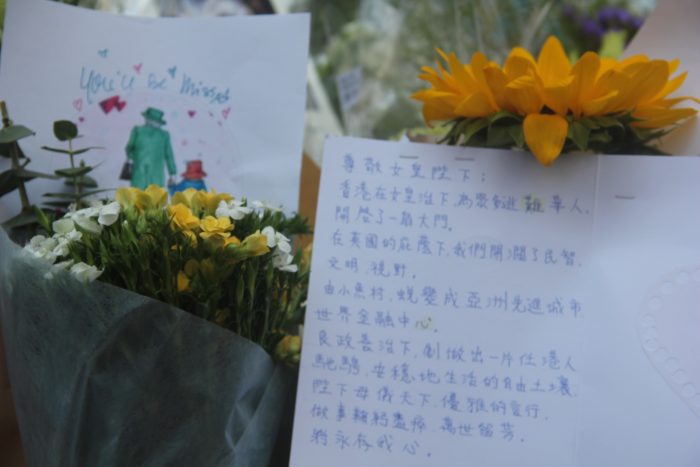 You'll be Missed
尊敬女皇陛下：
香港在女皇治下，為眾多逃難華人，
開啓了一扇大門。
在英國的庇蔭下，我們開濶了民智，
文明，視野。
由小魚村，蛻變成亞洲先進城市
世界金融中心。
良政善治下，創做出一片任港人
馳騁，安穩地生活的自由土壤，
陛下母儀天下，優雅的言行，
做事鞠躬盡瘁，萬世留芳。
將永存我心。